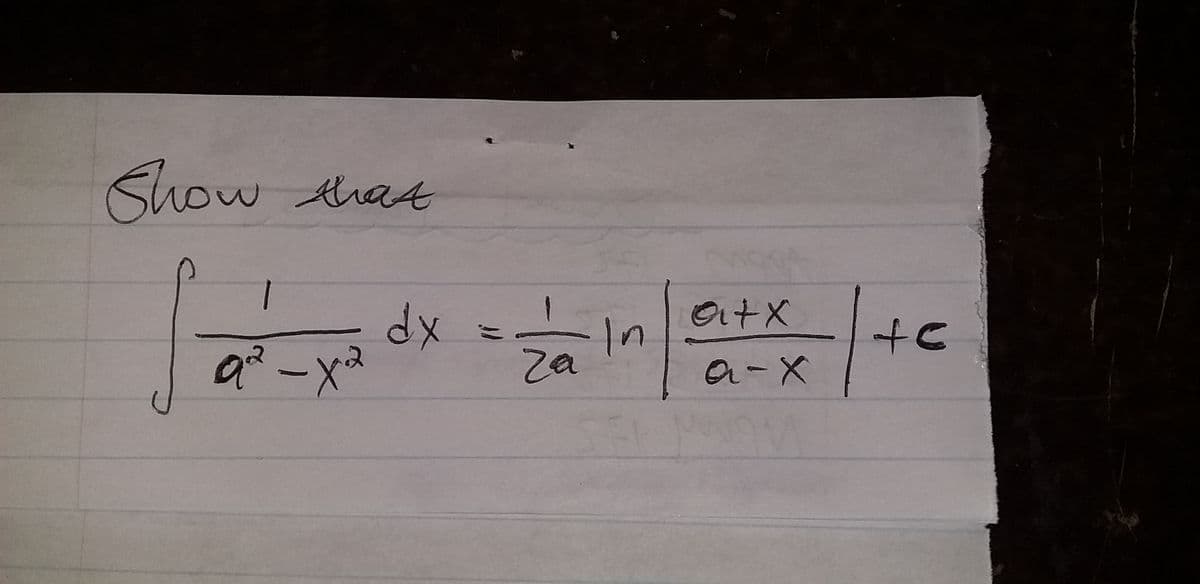 Show that
∫ 1/(a² - x²) dx = 1/2a ln | (a+x)/(a-x) | + c